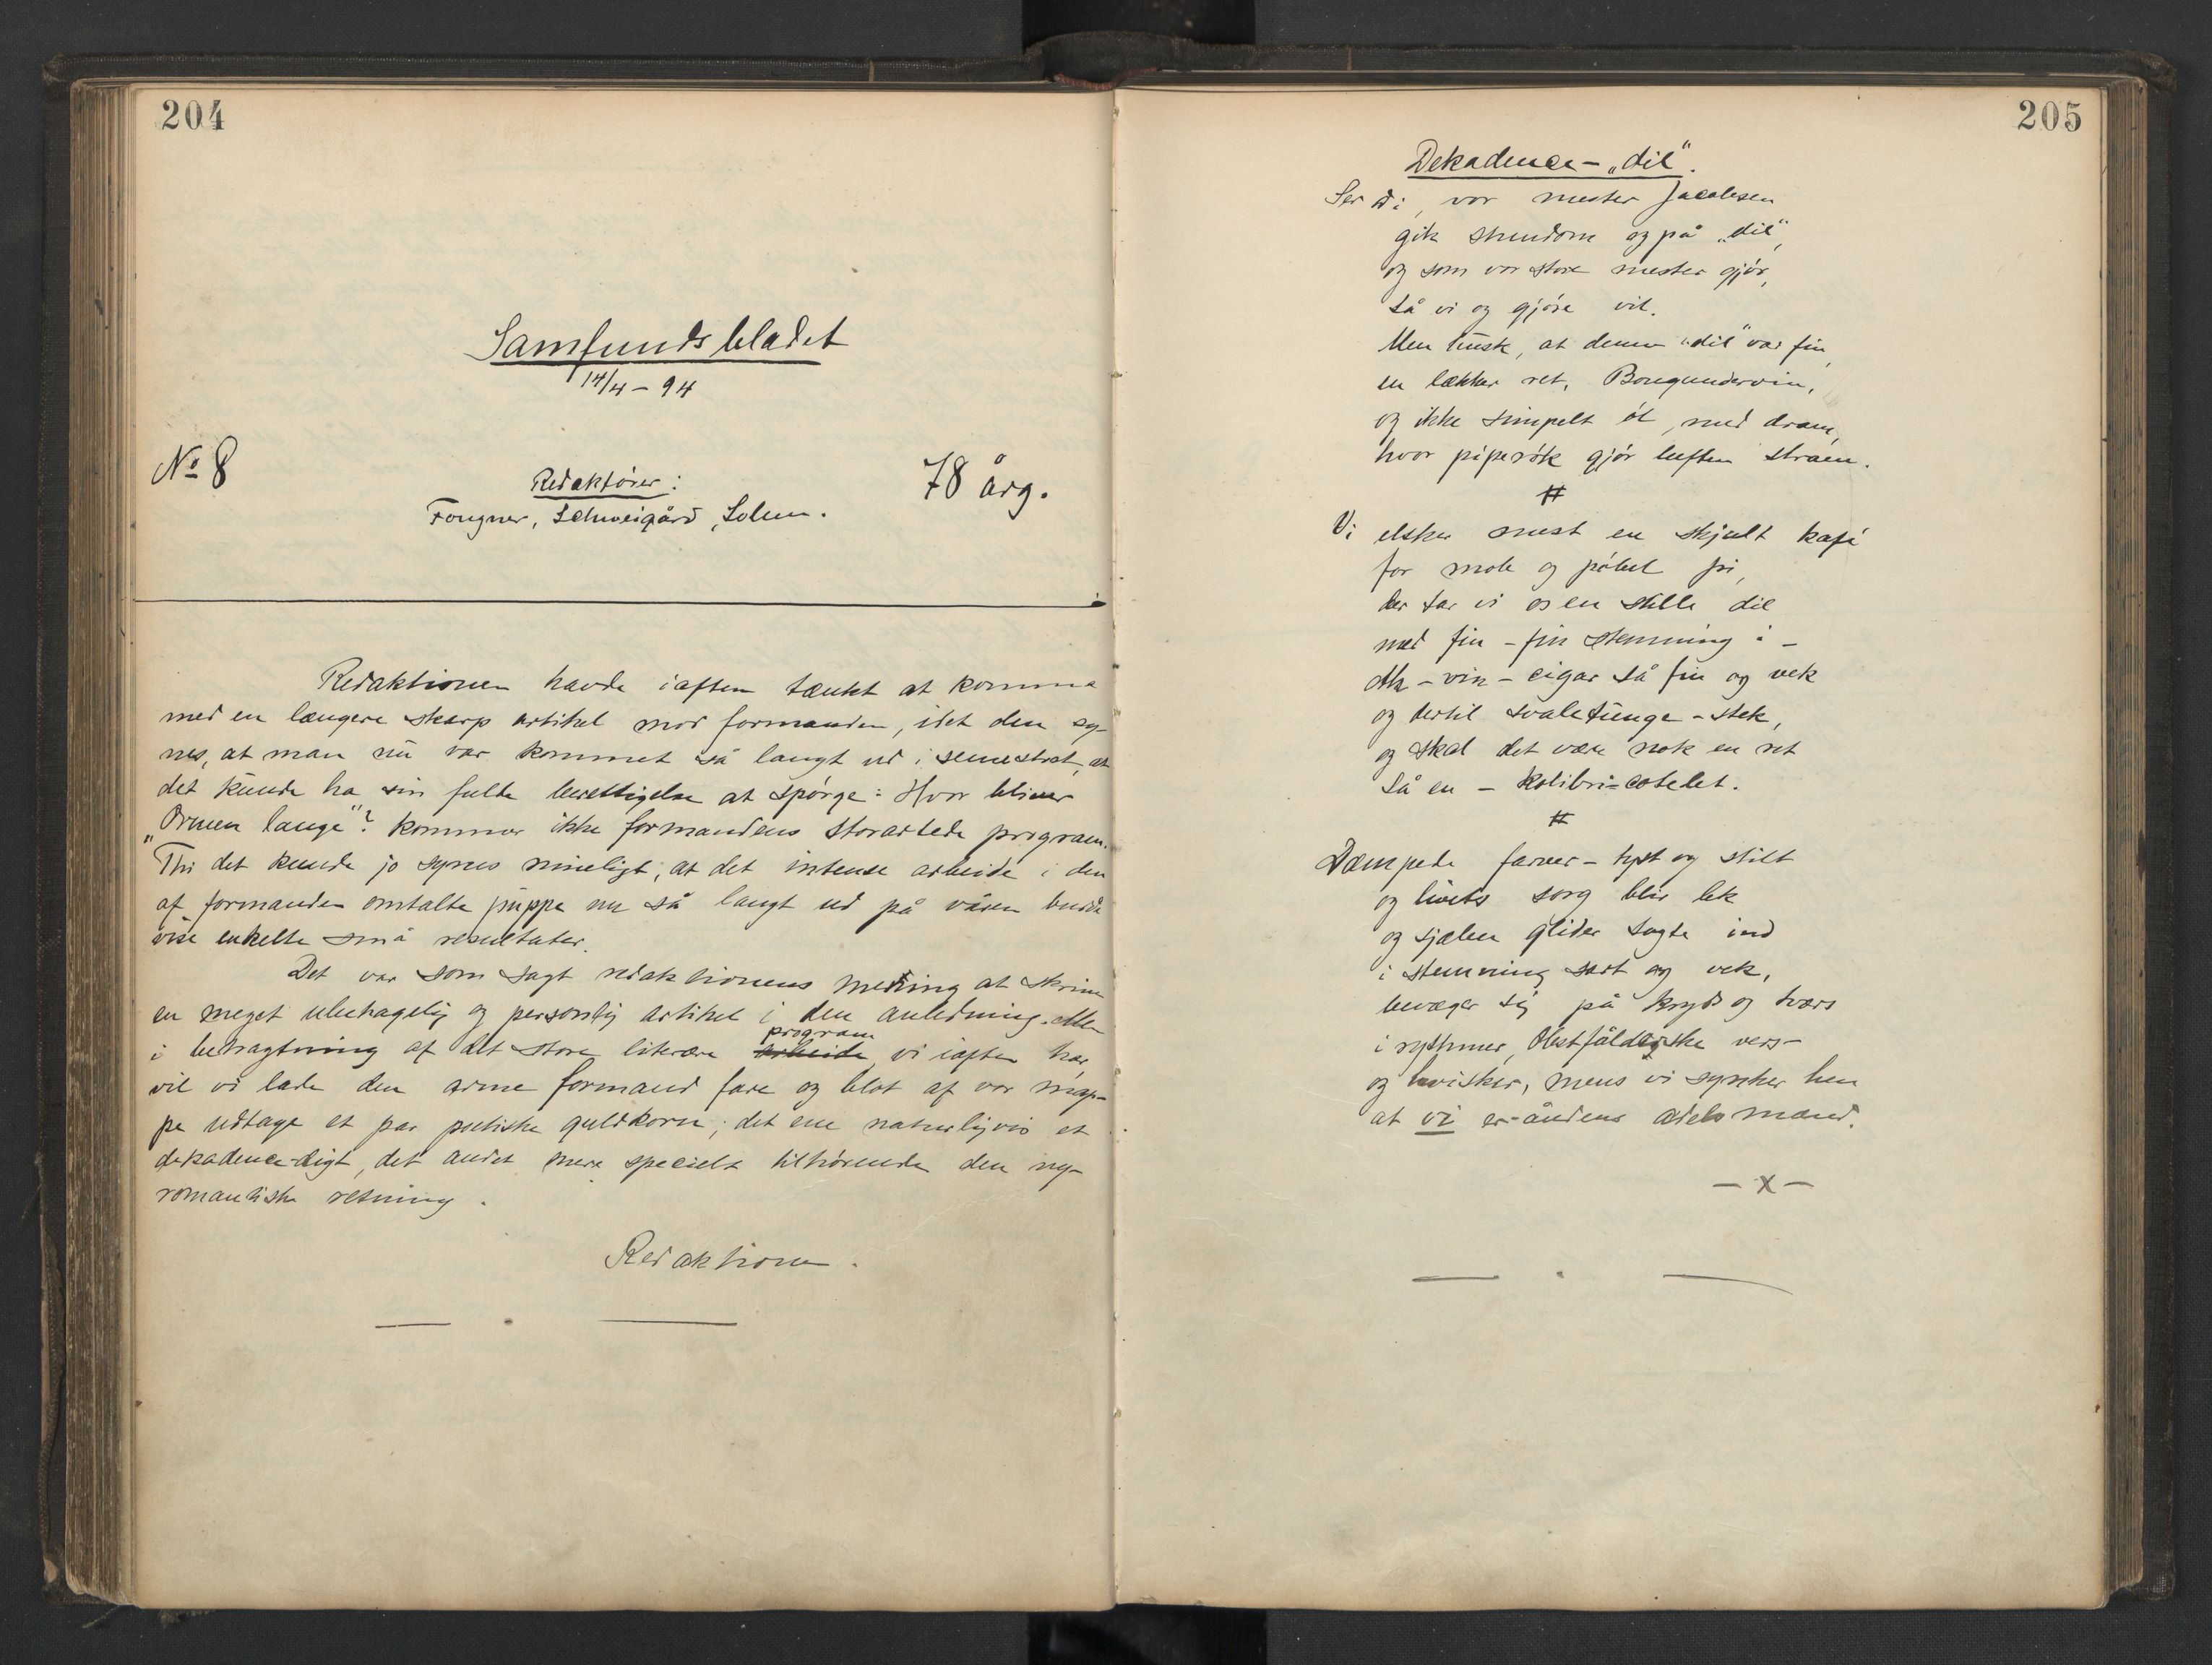 204
Samfundsbladet
14/4 - 94
No 8
Redaktører:
78 årg.
Fougner, Schweigård, Solem.
Redaktionen havde iaften tænkt at komme
med en længere skarp artikel mod formanden, idet den sy-
nes, at man nu var kommet så langt ud i semestret, at
det kunde ha sin fulde berettigelse at spørge: Hvor bliver
„Ormen lange"? Kommer ikke formandens storartede program.
Thi det kunde jo synes rimeligt, at det intense arbeide i den
af formanden omtalte juppe nu så langt ud på våren burde
vise enkelte små resultater.
Det var som sagt redaktionens mening at skrive
en meget ubehagelig og personlig artikel i den anledning. Men
program
i betragtning af det store literære arbeide, vi iaften har,
vil vi lade den arme formand fare og blot af vor map-
pe udtage et par poetiske guldkorn; det ene naturligvis et
dekadence-digt, det andet mere specielt tilhørende den ny-
romantiske retning.
Redaktionen.
205
Dekadence - „dil".
Ser Di, vor mester Jacobsen
gik stundom og på „dil",
og som vor store mester gjør,
så vi og gjøre vil.
Men husk, at denne „dil" var fin,
en lækker ret, Bourgundervin,
og ikke simpelt øl, med dram,
hvor piperøk gjør luften stram.
#
Vi elsker mest en skjult kafé
for mob og pøbel fri,
der tar vi os en stille dil
med fin-fin stemning i -
Ah - vin - cigar så fin og vek
og dertil svaletunge-stek,
og skal det være nok en ret
så en - kolibri-cotelet.
#
Dæmpede farver - tyst og stilt
og livets sorg blir lek
og sjælen glider sagte ind
i stemning sart og vek,
bevæger sig på kryds og tvers
i rythmer, Obstfelderske vers -
og hvisker, mens vi synker hen
at vi er åndens adelsmænd.
- x -